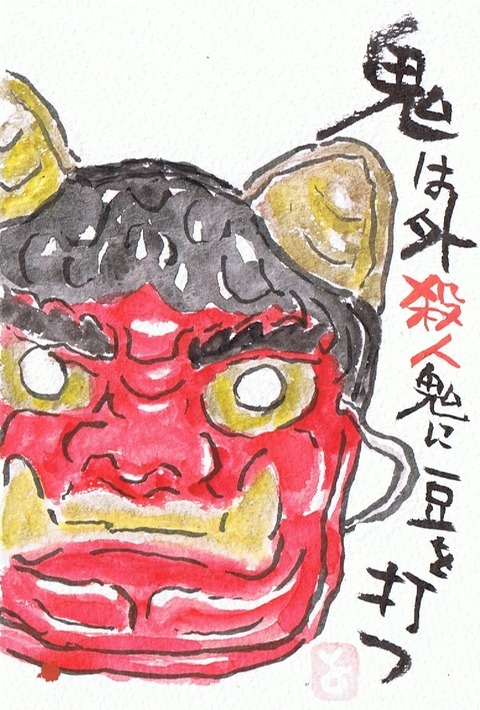 鬼は外殺人鬼に豆を打つ